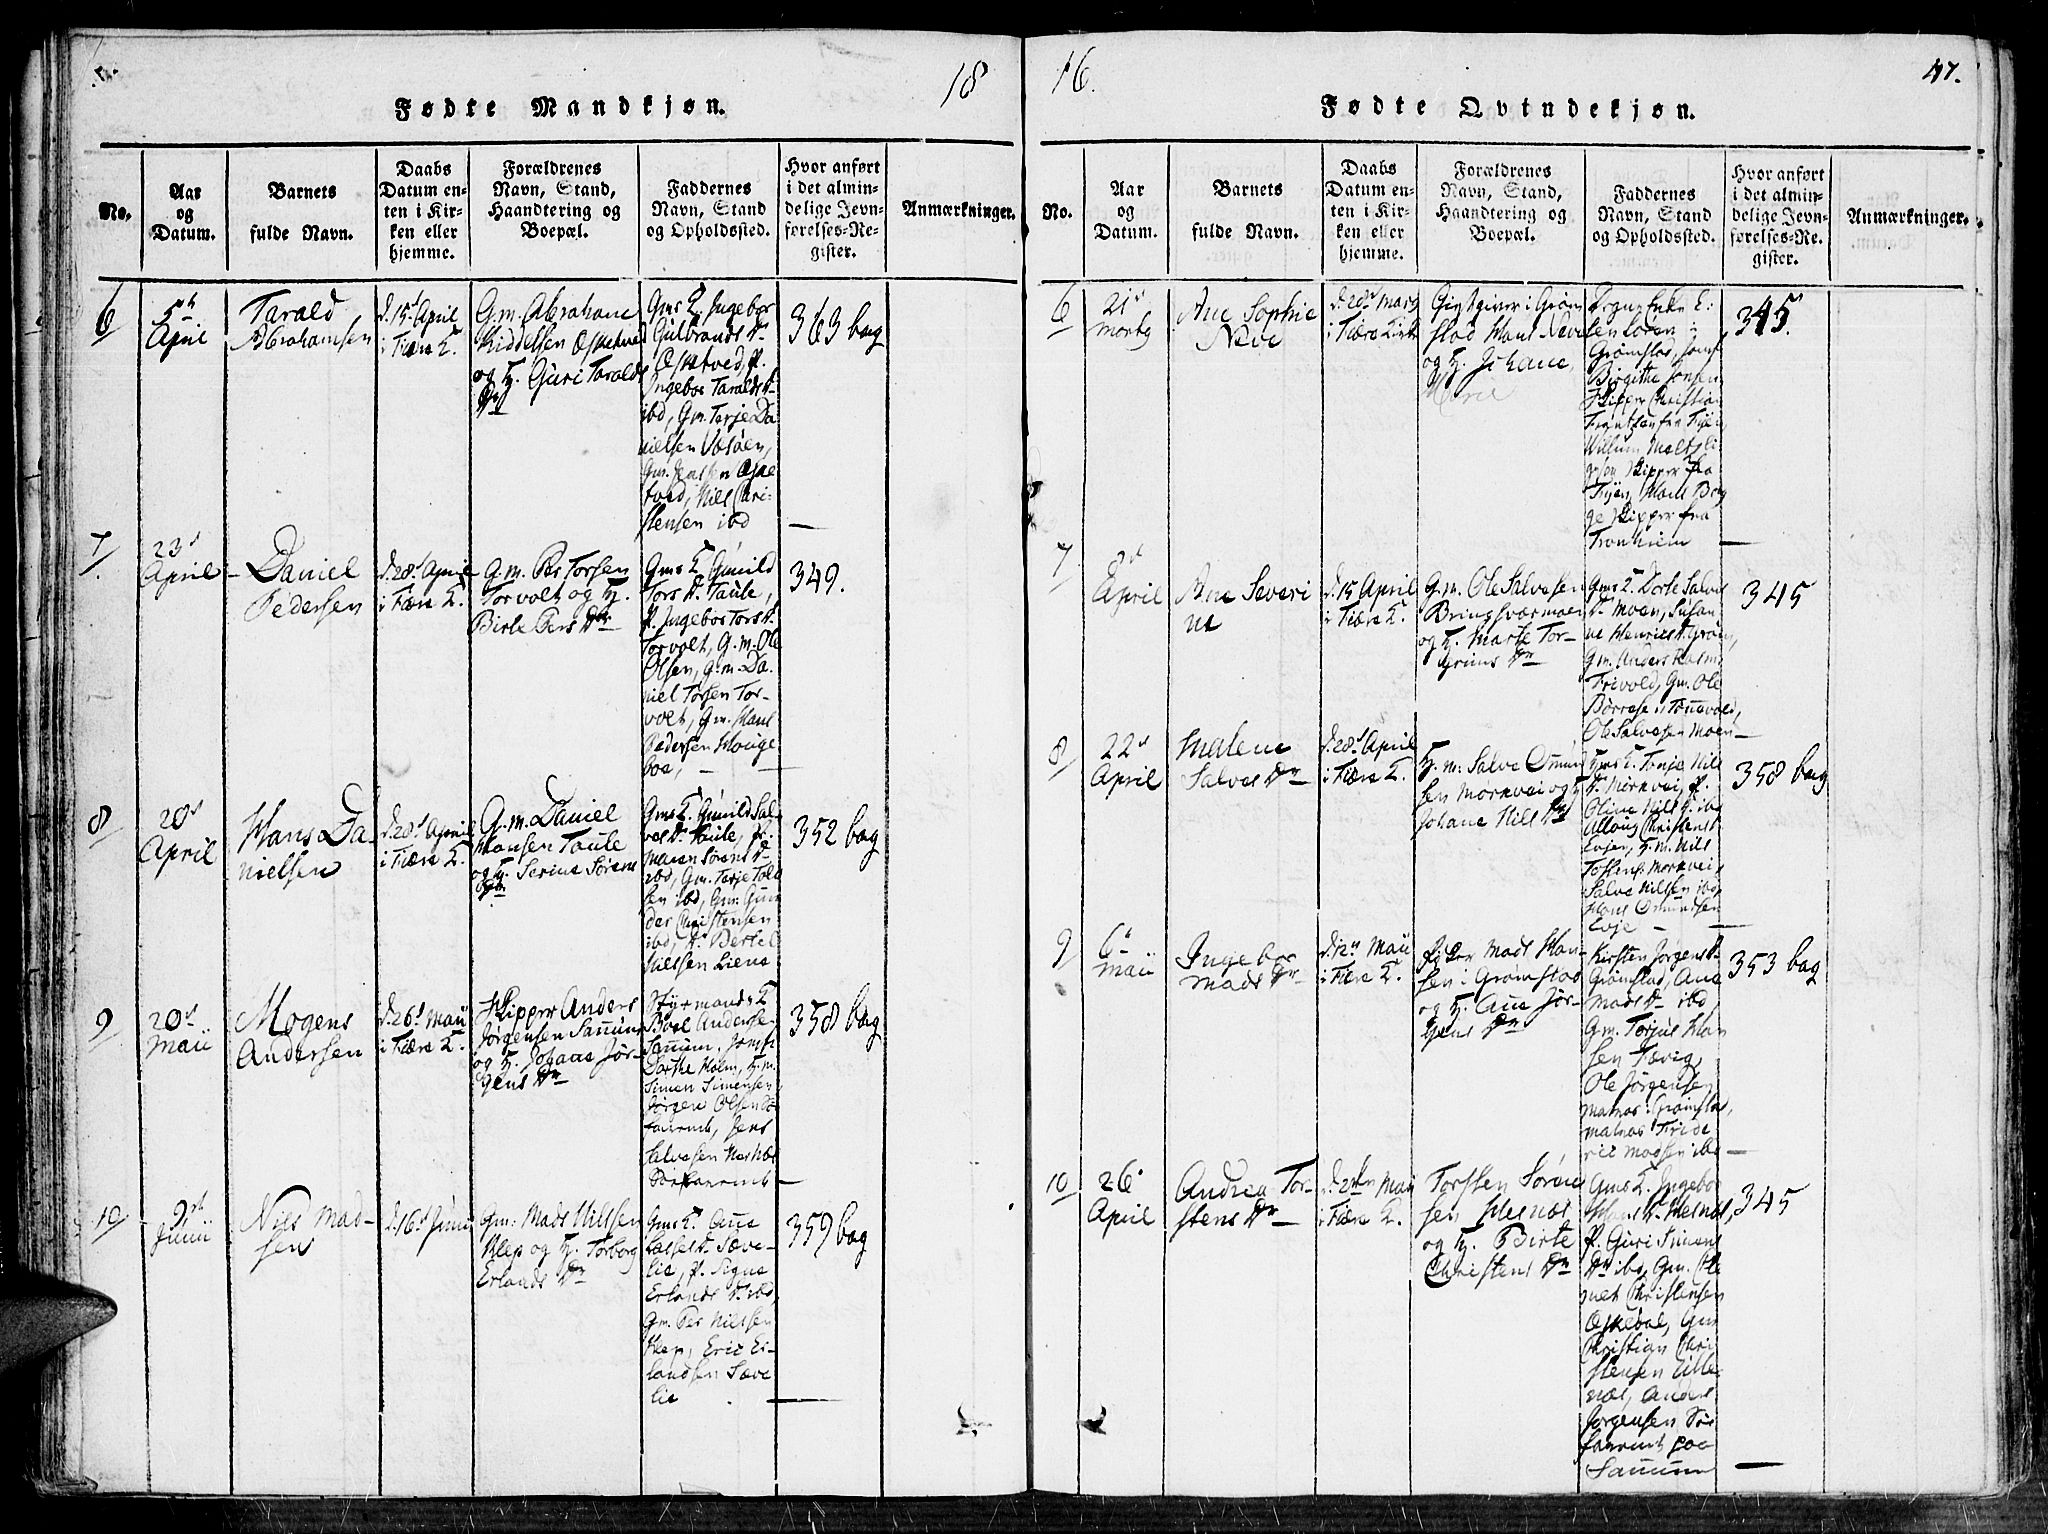 18
Fødte Mandkjøn.
No.
Aar
og
Datum.
Barnets
fulde Navn.
Daabs
Datum en-
ten i Kir-
ken eller
hjemme.
Forældrenes
Navn, Stand,
Haandtering og
Boepæl.
Faddernes
Navn, Stand
og Opholdssted.
Hvor anført
i det almin-
delige Jevn-
førelses-Re-
gister.
Anmærkninger.
6
5te
April
Tarald
Abrahamsen
d. 15d April
i Fiære K.
G.m. Abraham
Kiddelsen Osketved
og H. Guri Taralds
Dr
Gms K. Ingebor
Gulbrands Dr
Osketved, P.
Ingebor Taralds Dr
ibd, Gm. Tarje Da
nielsen Vesøen,
Gm. Jens
tved, Nils Chri-
stensen ibd
363 bag
7
23d
April
Daniel
Pedersen
d. 28d April
i Fiære K.
G.m. Per Torsen
Torvolt og H.
Birte Pers Dr
Gms K. Gunild
Tors D. Taule,
P. Ingebor Tors D.
Torvolt, G.m. Ole
Olsen, G.m. Da-
niel Torsen Tor-
volt, Gm. Hans
Pedersen Houge
boe,
349.
8
28d
April
Hans Da-
nielsen
d. 28d April
i Fiære K.
G.m. Daniel
Hansen Taule
og H. Serine Sørens
Dr
Gms K. Gunild Sal-
ves D. Taule, P.
Maren Sørens D.
ibd, Gm. Tarje Tol
sen ibd, Gm. Gun
der Christensen
ibd, Bertel
Nilssen Liene
352 bag
9
20d
Maii
Mogens
Andersen
d. 26d Maii
i Fiære K.
Skipper Anders
Jørgensen Sauum
og H. Johane Jør-
gens Dr
Styrmands K
Boel Anders
Sauum, Jomf.
Dorthe Holm, H.m.
Simen Simensen
Jørgen Olsen Sø
faurende, Jens
Salvesen Hesnæs
358 bag
10
9de
Junii
Niels Mad-
sen
d. 16d Junii
Gm: Mads Nilssen
Klep og H. Torborg
Erlands Dr
Gms K. Ane
Lasses D. Sæve-
lie, P. Signe
Erlands D. ibd,
Gm. Per Nilssen
Klep, Eric Er-
landsen Sæve
lie
359 bag
16.
47.
Fødte Qvindekjøn.
No.
Aar
og
Datum.
Barnets
fulde Navn.
Daabs
Datum en-
ten i Kir-
ken eller
hjemme.
Forældrenes
Navn, Stand,
Haandtering og
Boepæl.
Faddernes
Navn, Stand
og Opholdssted.
Hvor anført
i det almin-
delige Jevn-
førelses-Re-
gister.
Anmærkninger.
6
21d
Ane Sophie
Neve
i Fiære Kirke
Giestgiver i Grøm
stad Hans Neve
og H. Johane
Marie
Enke
Grømstad, Jomf.
Birgithe Jensen
Skipper Christian
Frantsen fra
Willum
Skipper fra
Hans Bag
ge Skipper fra
Tronhiem
345.
7
8d
April
Ane Severi
ne
d. 15 April
i Fiære K.
G.m. Ole Salvesen
Bringsværmoen
og H. Marte Tor-
grims Dr
Gms K. Dorte Salves
D. Moen, Susan-
ne Henrics D. Grøm,
Gm. Anders Rasm.
Frivold, Gm. Ole
Børresen Tønnevold,
Ole Salvesen Moen
345
8
22d
April
Malene
Salves Dr
d. 28d April
i Fiære K.
H.m. Salve Omun
sen Morkvei og H
Johane Nils Dr
Gms K. Tonje Nils
D. Morkvei, P.
Oline Nils D. ibd
Alloug Christens D
Evje, H.m. Nils
Tostens. Morkvei,
Salve Nilsen ibd,
Hans Omundsen
Evje
358 bag
9
6d
Maii
Ingebor
Mads Dr
d. 12te Maii
i Fiære K.
Mads Han-
sen i Grømstad
og H. Ane Jør-
gens Dr
Kirsten Jørgens D.
Grømstad, Ane
Mads D. ibd,
Gm. Torjus Han
sen Fævig,
Ole Jørgensen
matros i Grømsta,
matros Fride
ric Madsen ibd
353 bag
10
26d
April
Andrea Tor-
stens Dr
Maii
i Fiære K.
Torsten Søren
sen Hesnæs
og H. Birte
Christens Dr
Gms K. Ingebor
Hans D. Hesnæs,
P. Guri Simens
Dr ibd, Gm. Ole
Christensen
Gm
Christian Chri
stensen Lille-
næs, Anders
Jørgensen Sø-
faurende paa
Sauum
345